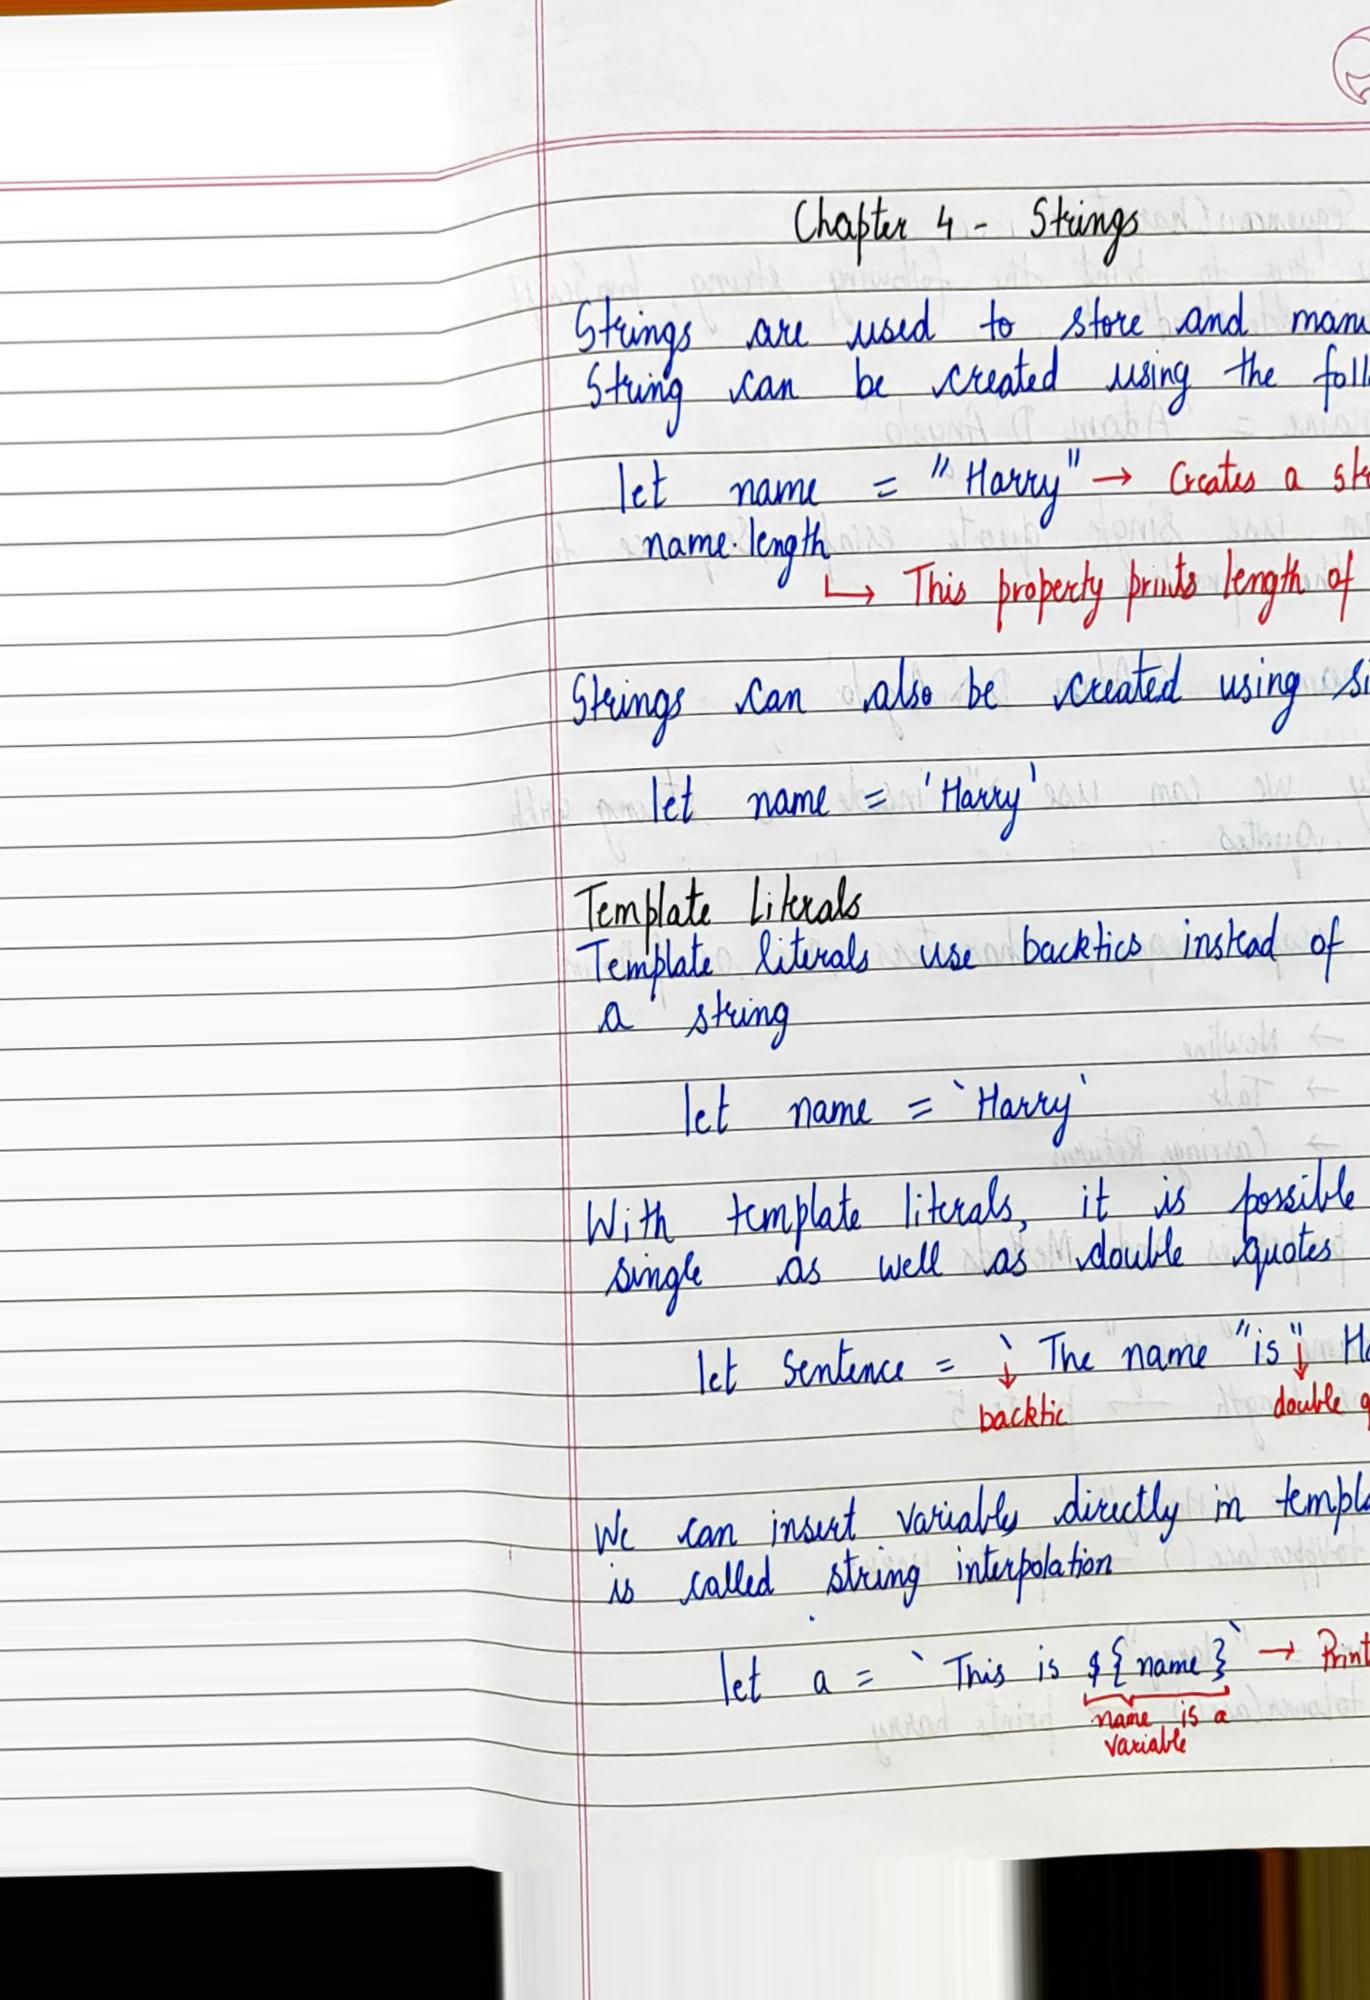 Chapter 4 - Strings
Strings are used to store and
String can be created using the
let name = "Harry" → Creates a
name.length
↳ This property prints length of
Strings can also be created using
let name = 'Harry'
Template Literals
Template literals use backtics instead of
a string
let name = `Harry`
With template literals, it is possible
single as well as double quotes
let sentence = ` The name "is"
backtic double
We can insert variables directly in
is called string interpolation
let a = ` This is ${name}` →
name is a
variable